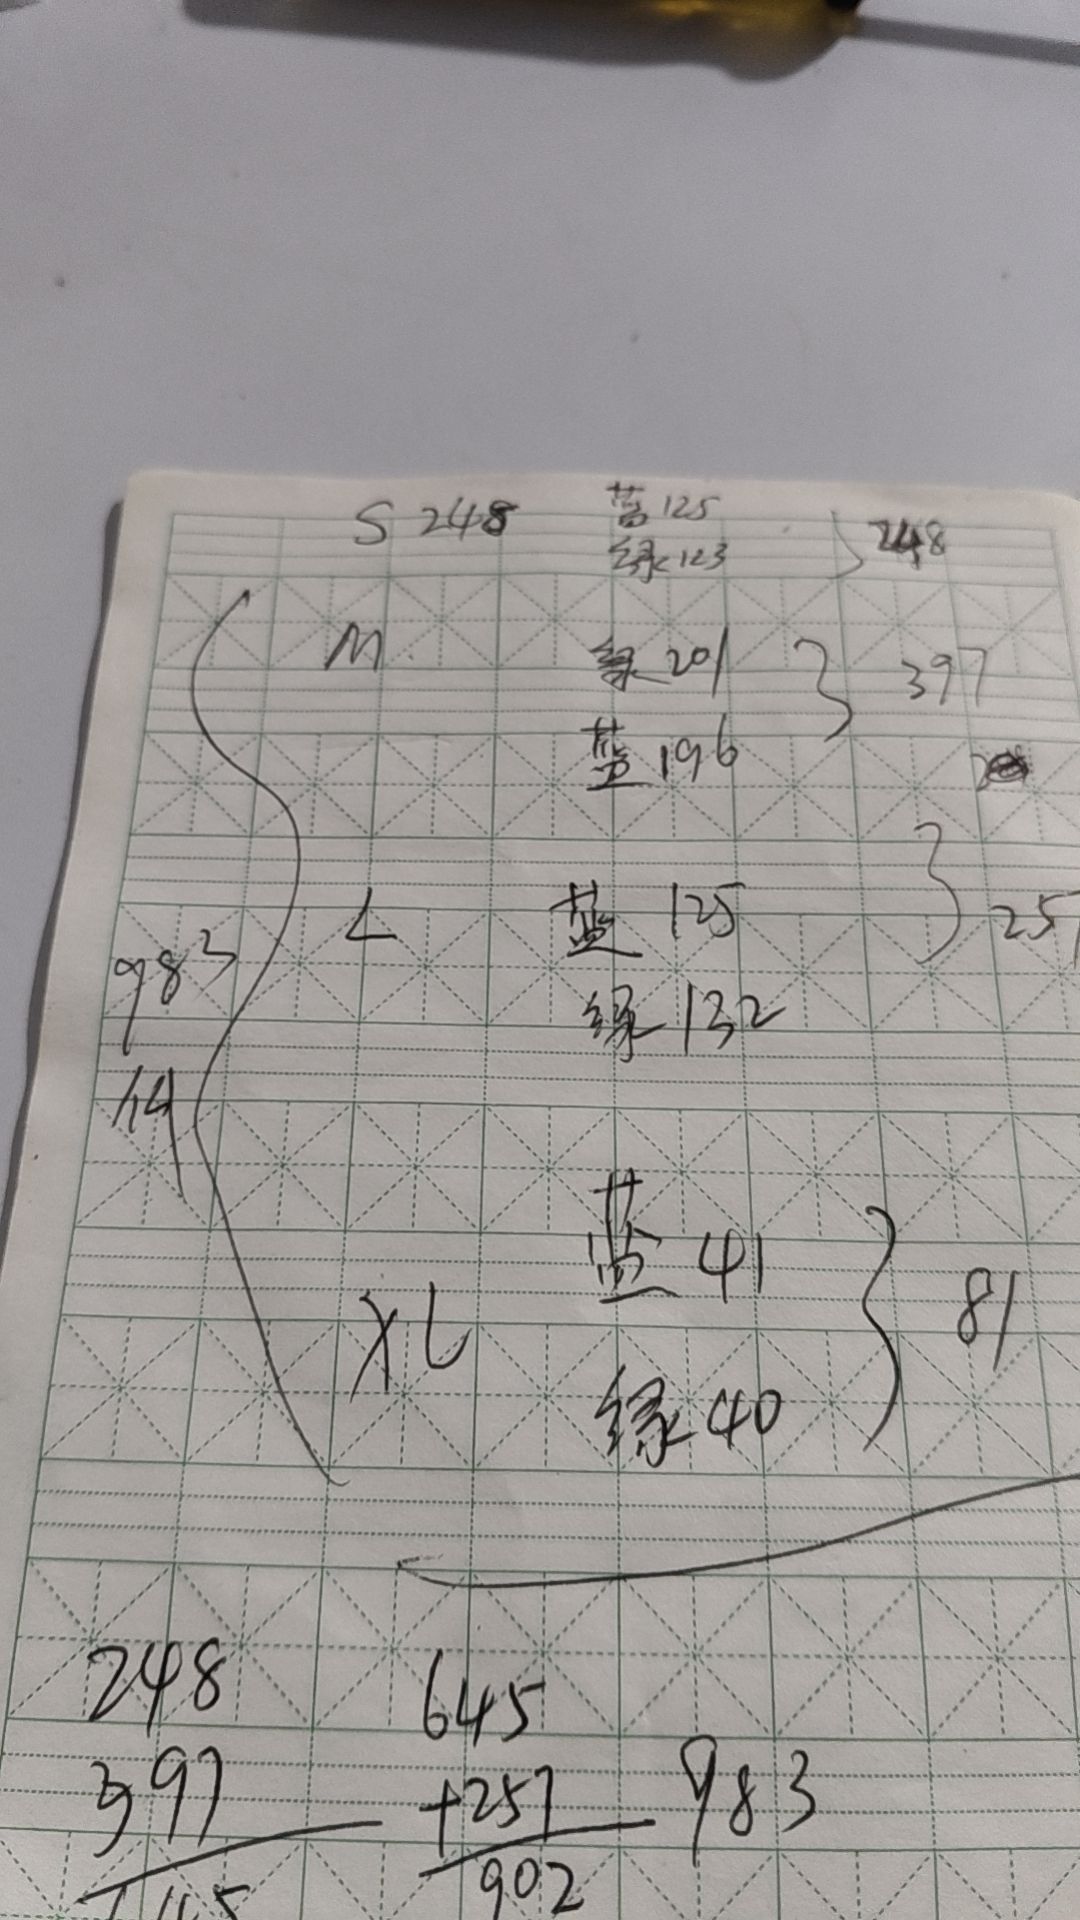 S 248 蓝 125
绿 123 248
M 绿 201 397
蓝 196
L 蓝 125 257
绿 132
983
件
XL 蓝 41 81
绿 40
248 645
397 +257 983
645 902